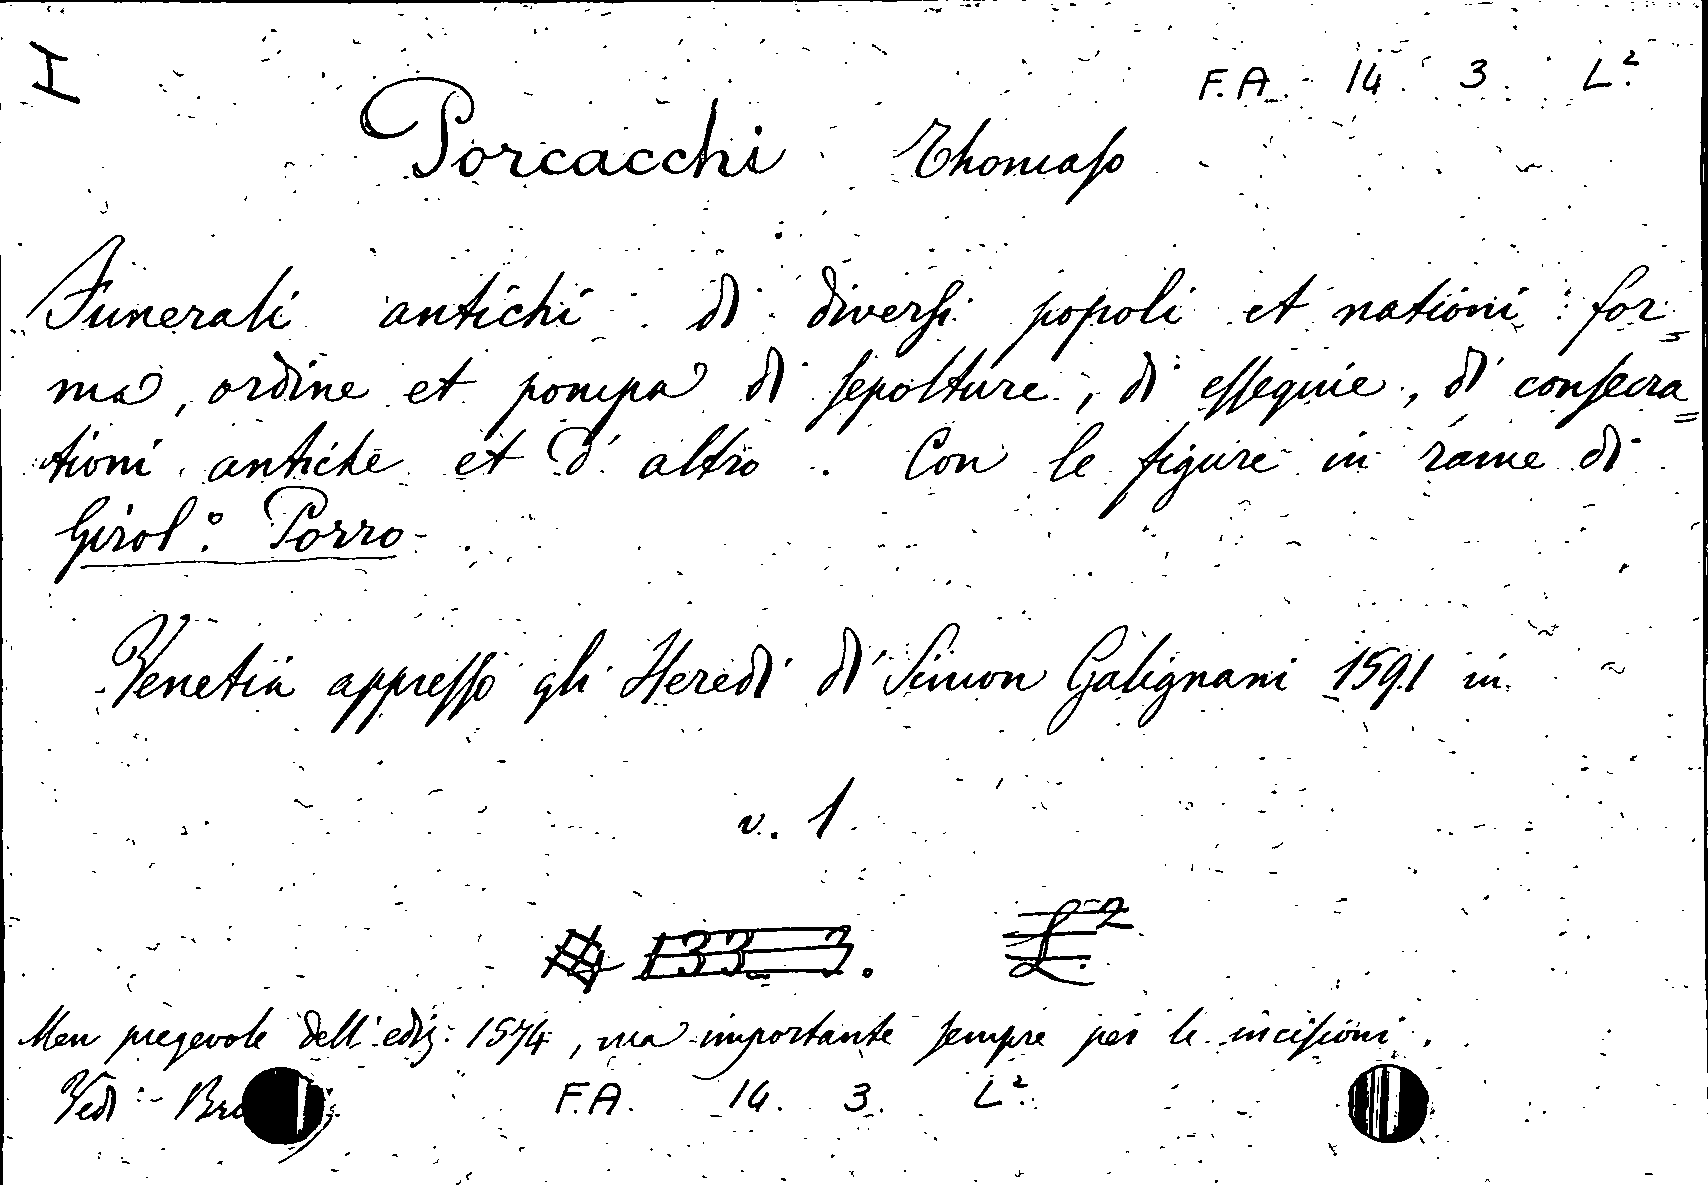 I
F.A. 14. 3. L².
Porcacchi Thomaso
Funerali antichi di diversi popoli et nationi for=
ma, ordine et pompa di sepolture, di essequie, di consecra=
tioni antiche et d'altro. Con le figure in rame di
Girol.º Porro
Venetia appresso gli Heredi di Simon Galignani 1591 in
v. 1
133 3. L².
Men pregevole dell'ediz. 1574, ma importante sempre per le incisioni.
Vedi
F.A. 14. 3. L².